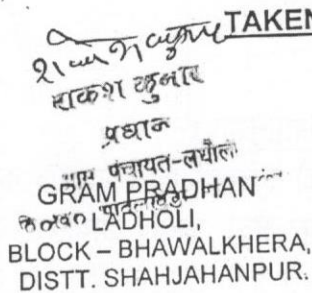 TAKEN
राकेश कुमार
प्रधान
ग्राम पंचायत-लधौली
GRAM PRADHAN
LADHOLI,
BLOCK – BHAWALKHERA,
DISTT. SHAHJAHANPUR.